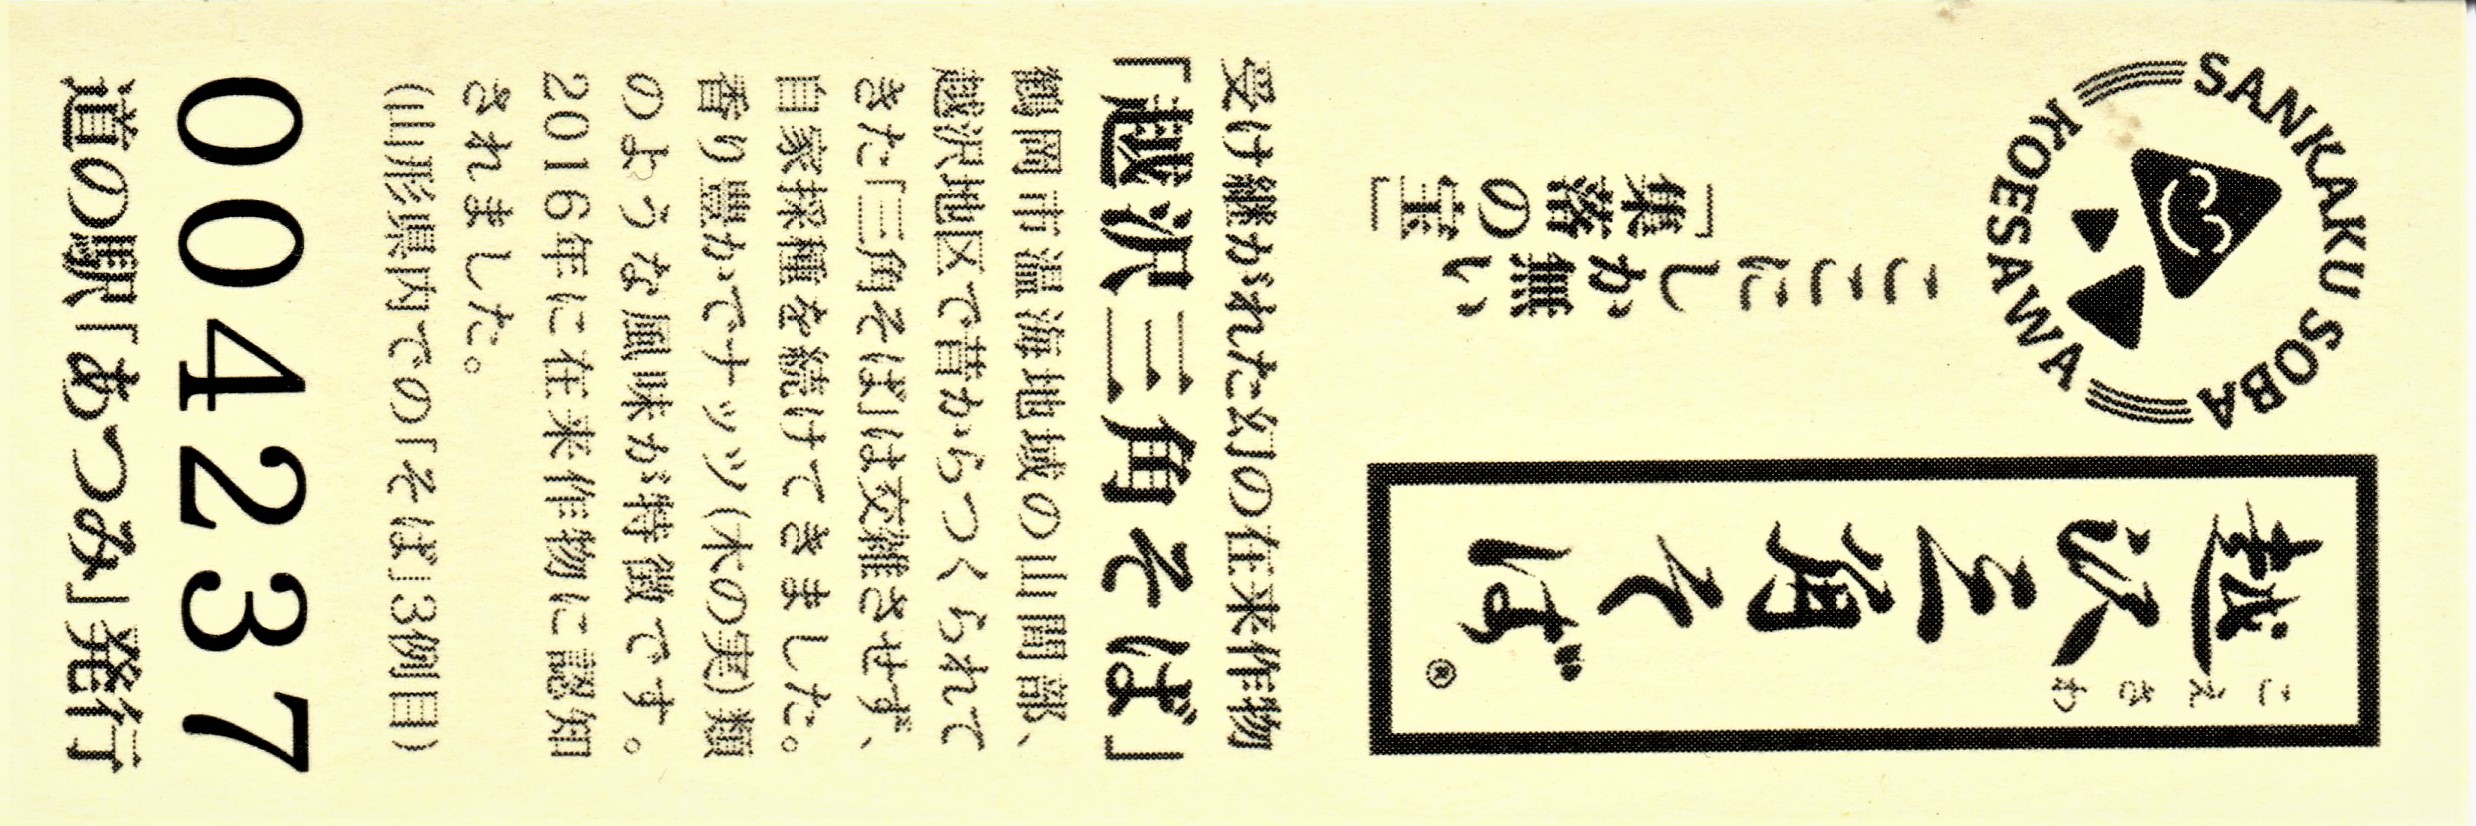 SANKAKU SOBA
KOESAWA
越沢三角そば®
こえさわ
ここにしか無い
「集落の宝」
受け継がれた幻の在来作物
「越沢三角そば」
鶴岡市温海地域の山間部、
越沢地区で昔からつくられて
きた「三角そば」は交雑させず、
自家採種を続けてきました。
香り豊かでナッツ(木の実)類
のような風味が特徴です。
2016年に在来作物に認知
されました。
(山形県内での「そば」3例目)
004237
道の駅「あつみ」発行